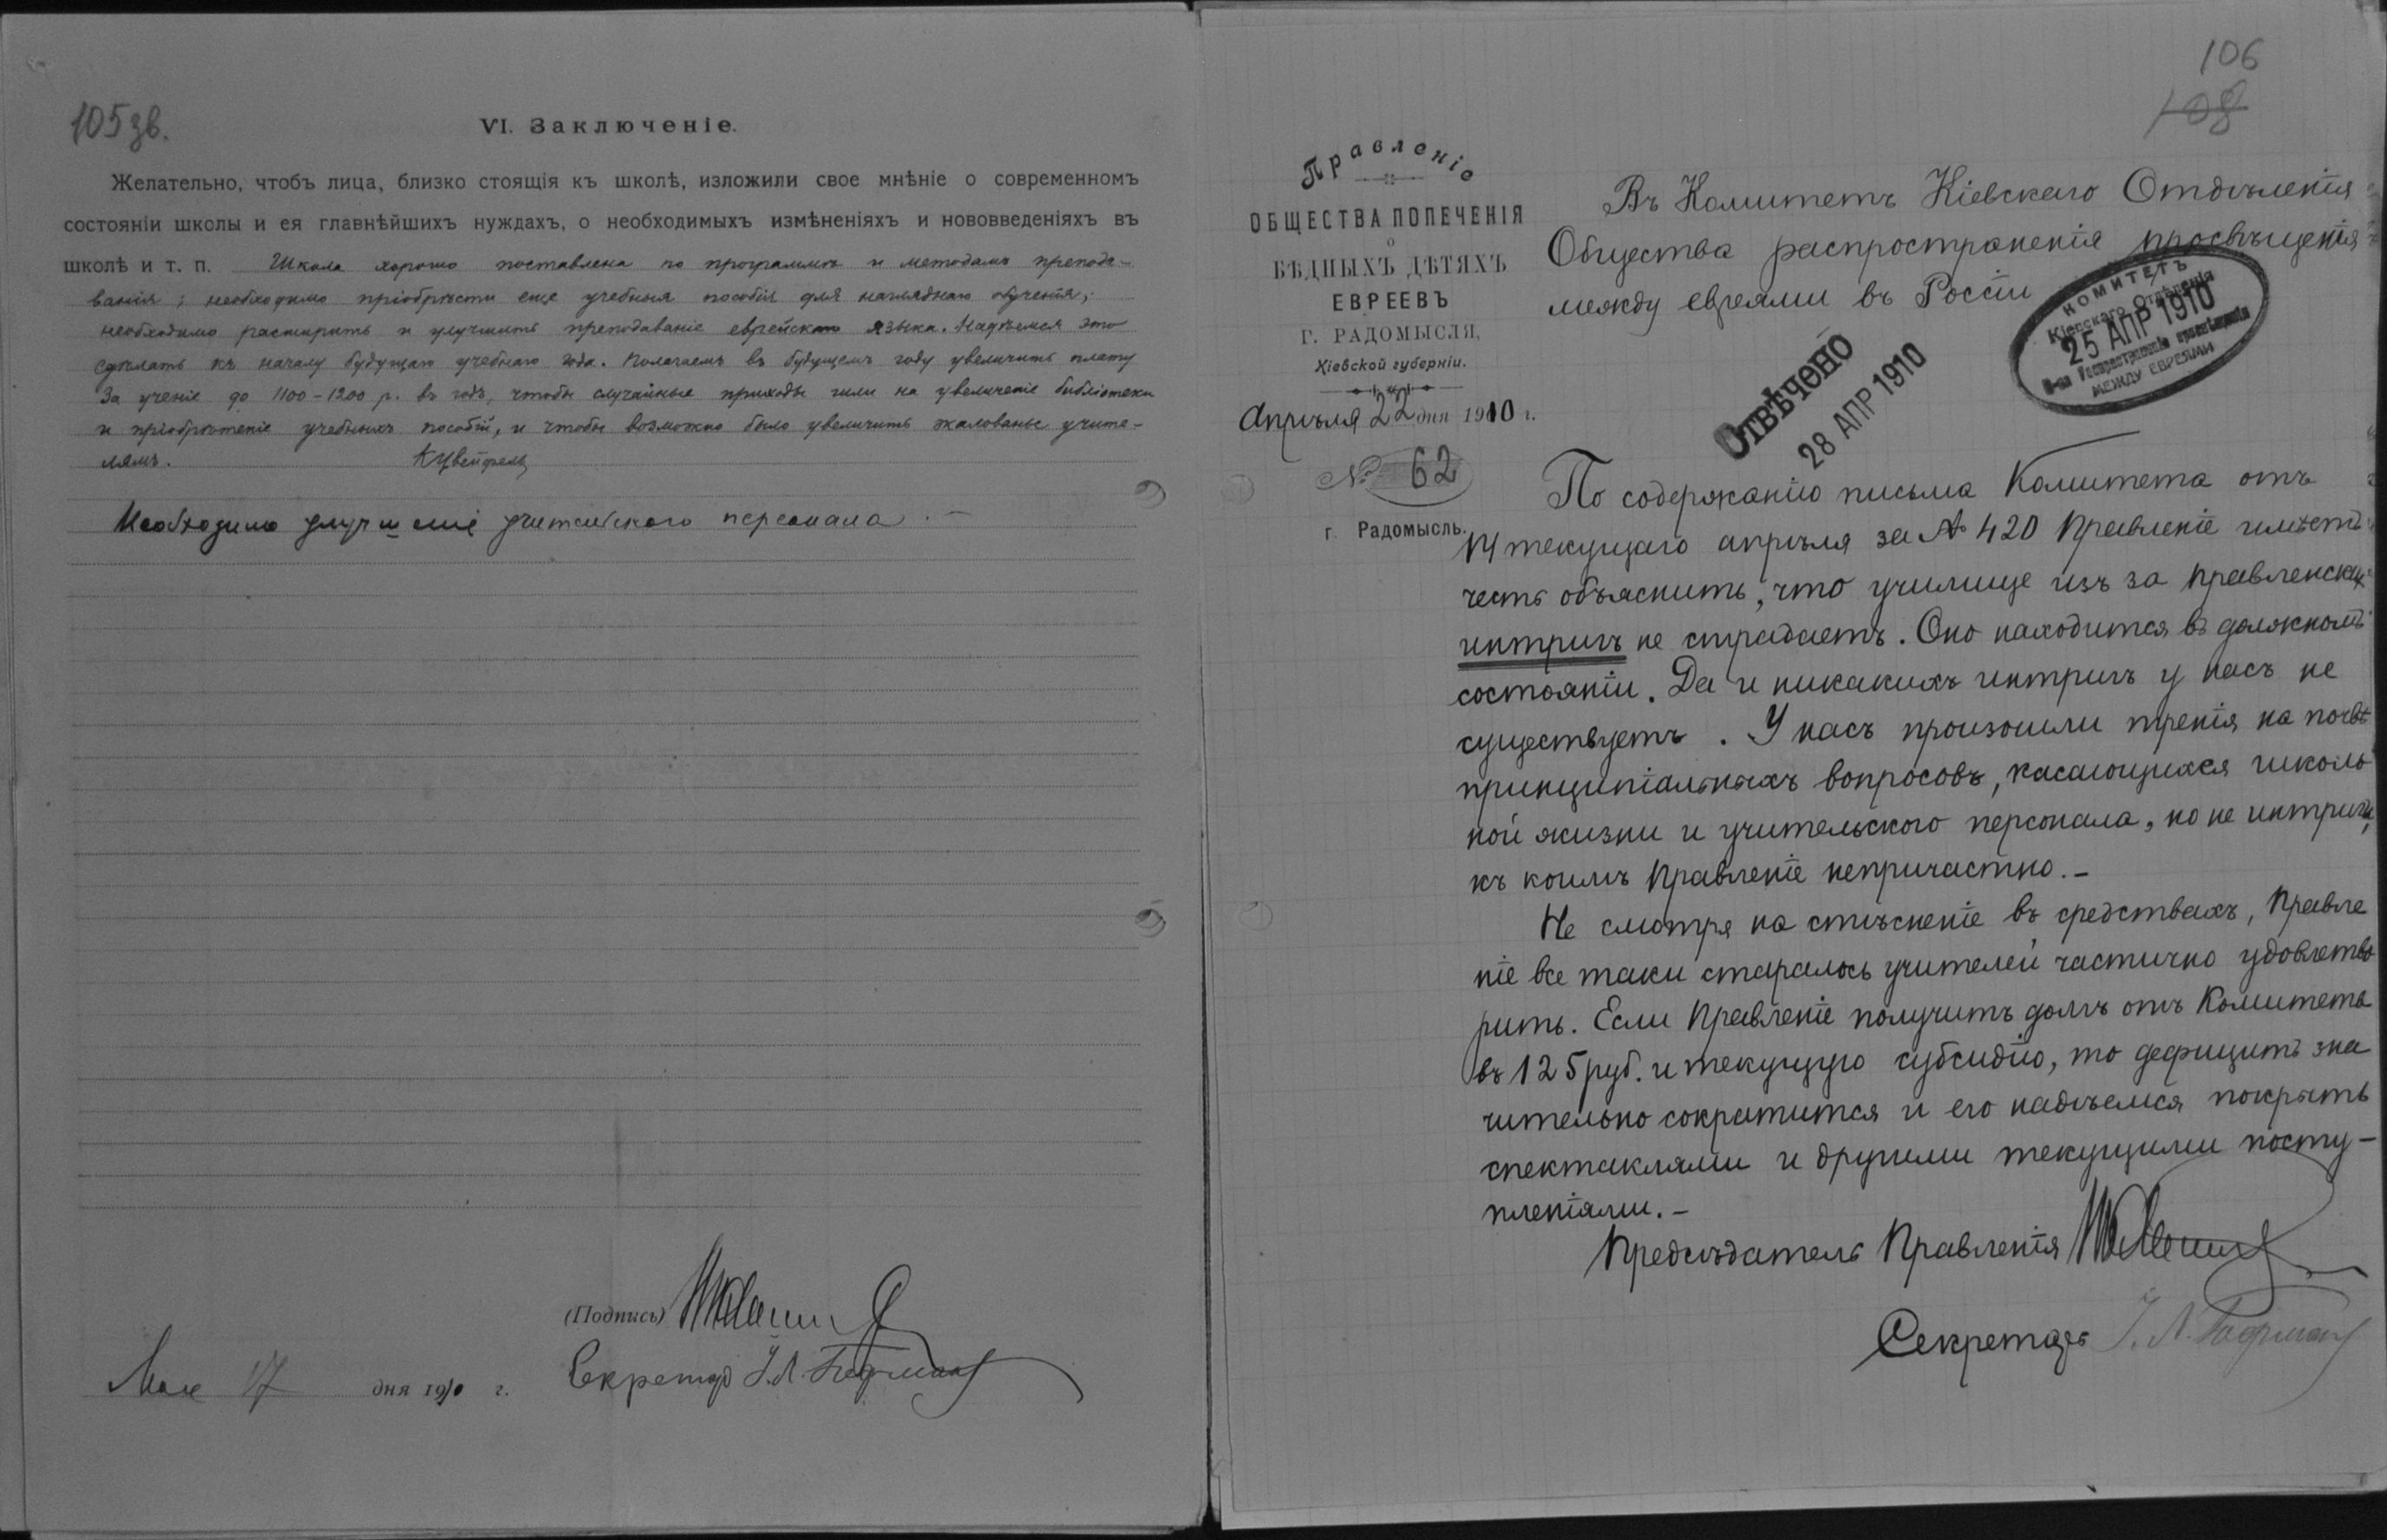 105 зв.
VI. Заключеніе.
Желательно, чтобъ лица, близко стоящія къ школѣ, изложили свое мнѣніе о современномъ
состояніи школы и ея главнѣйшихъ нуждахъ, о необходимыхъ измѣненіяхъ и нововведеніяхъ въ
школѣ и т. п. Школа хорошо поставлена по программѣ и методамъ препода-
ванія; необходимо пріобрѣсти еще учебныя пособія для нагляднаго обученія;
необходимо расширить и улучшить преподаваніе еврейскаго языка. Надѣемся это
сдѣлать къ началу будущаго учебнаго года. Полагаемъ въ будущемъ году увеличить плату
за ученіе до 1100-1200 р. въ годъ, чтобы случайные приходы шли на увеличеніе библіотеки
и пріобрѣтеніе учебныхъ пособій, и чтобы возможно было увеличить жалованье учите-
лямъ. Цвейфель
Необходимо улучшеніе учительского персонала. -
(Подпись)
Секретарь
Мая 17 дня 1910 г.
106
108
Правленіе
ОБЩЕСТВА ПОПЕЧЕНІЯ
о
БѢДНЫХЪ ДѢТЯХЪ
ЕВРЕЕВЪ
Г. РАДОМЫСЛЯ,
Кіевской губерніи.
Апрѣля 22 дня 1910 г.
№ 62
г. Радомысль.
Въ Комитетъ Кіевскаго Отдѣленія
Общества распространенія просвѣщенія
между евреями въ Россіи
КОМИТЕТЪ
Кіевскаго Отдѣленія
25 АПР 1910
О-ва Распространенія просвѣщенія
МЕЖДУ ЕВРЕЯМИ
ОТВѢЧЕНО
28 АПР 1910
По содержанію письма Комитета отъ
14 текущаго апрѣля за № 420 Правленіе имѣетъ
честь объяснить, что училище изъ за правленскихъ
интригъ не страдаетъ. Оно находится въ должномъ
состояніи. Да и никакихъ интригъ у насъ не
существуетъ. У насъ произошли тренія на почвѣ
принципіальныхъ вопросовъ, касающихся школь
ной жизни и учительского персонала, но не интриги,
къ коимъ Правленіе непричастно. -
Не смотря на стѣсненіе въ средствахъ, Правле
ніе все таки старалось учителей частично удовлетво
рить. Если Правленіе получитъ долгъ отъ Комитета
въ 125 руб. и текущую субсидію, то дефицитъ зна
чительно сократится и его надѣемся покрыть
спектаклями и другими текущими посту-
пленіями. -
Предсѣдатель Правленія
Секретарь